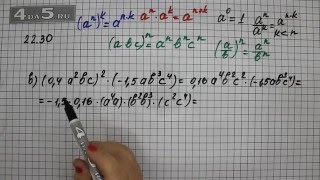 4ДА5.RU
(aⁿ)ᵏ = aⁿ·ᵏ aⁿ · aᵏ = aⁿ⁺ᵏ a⁰ = 1 aⁿ/aᵏ = aⁿ⁻ᵏ
k < n
22.30 (abc)ⁿ = aⁿbⁿcⁿ (a/b)ⁿ = aⁿ/bⁿ
в) (0,4 a²bc)² · (-1,5 ab³c⁴) = 0,16 a⁴b²c² · (-1,5ab³c⁴) =
= -1,5 · 0,16 · (a⁴a) · (b²b³) · (c²c⁴) =